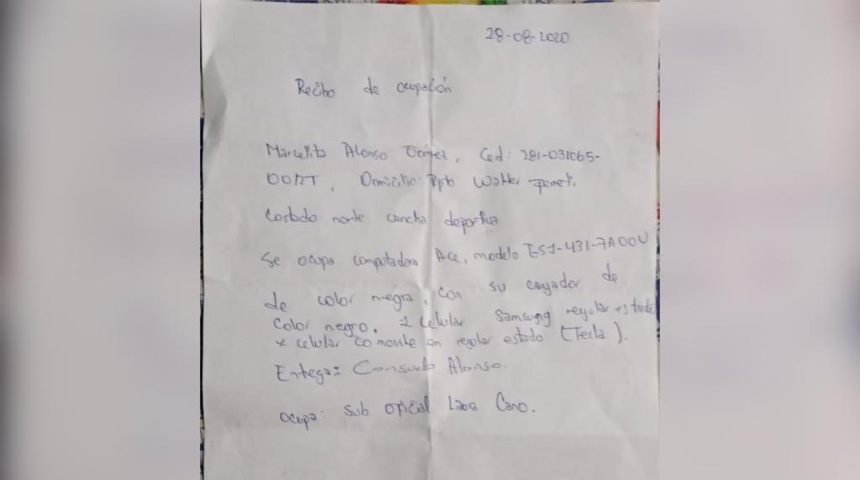 28-08-2020
Recibo de ocupación
Marcelita Alonso, Ced: 281-031065-
Domicilio: Rpto Walter
Costado norte cancha deportiva
Se ocupa computadora Ace, modelo ES1-431-7A00U
de color negra, con su cargador de
color negro, 1 celular Samsung regular estado
celular en regular estado (Tecla).
Entega: Consuelo Alonso.
Ocupa: Sub oficial Cano.